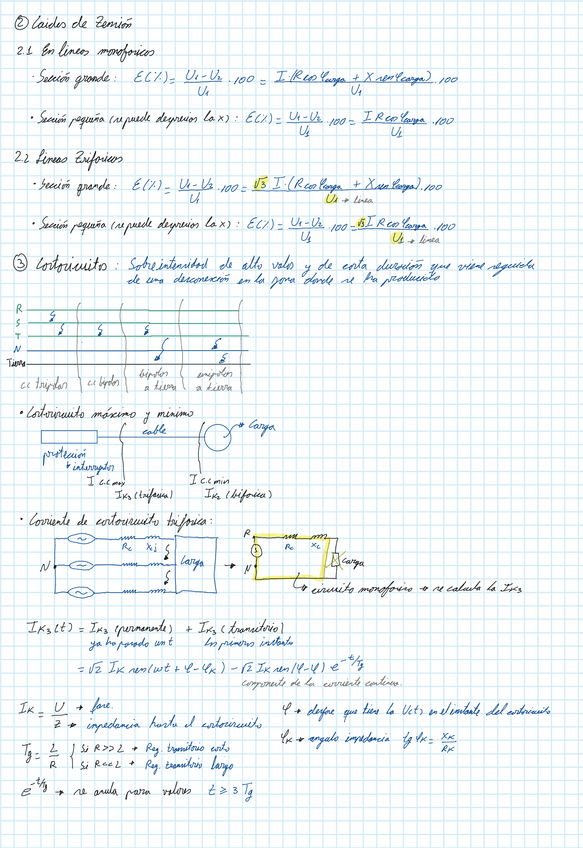 ② Caídas de Tensión
2.1 En líneas monofásicas
· Sección grande: E(%) = (U1 - U2)/U1 · 100 = I (R cos φcarga + X sen φcarga)/U1 · 100
· Sección pequeña (se puede despreciar la X): E(%) = (U1 - U2)/U1 · 100 = I R cos φcarga/U1 · 100
2.2 Líneas trifásicas
· Sección grande: E(%) = (U1 - U2)/U1 · 100 = √3 I · (R cos φcarga + X sen φcarga)/U1 · 100
→ línea
· Sección pequeña (se puede despreciar la X): E(%) = (U1 - U2)/U1 · 100 = √3 I R cos φcarga/U1 · 100
→ línea
③ Cortocircuitos: Sobreintensidad de alto valor y de corta duración que viene seguida
de una desconexión en la zona donde se ha producido
R
S
T
N
Tierra
cc tripolar cc bipolar bipolar a tierra unipolar a tierra
· Cortocircuito máximo y mínimo
cable → Carga
protección
↳ interruptor
I c.c max I c.c min
IK3 (trifásica) IK2 (bifásica)
· Corriente de cortocircuito trifásica:
N Rc Xc Carga → R N Rc Xc Carga
↳ circuito monofásico → se calcula la IK3
IK3(t) = IK3 (permanente) + IK3 (transitorio)
ya ha pasado un t los primeros instantes
= √2 IK sen(ωt + φ - φK) - √2 IK sen(φ - φ) e^-t/Tg
componente de la corriente continua.
IK = U/Z → fase.
→ impedancia hasta el cortocircuito
φ → desfase que tiene la U(t) en el instante del cortocircuito
φK → angulo impedancia tg φK = XK/RK
Tg = L/R { Si R >> L → Reg. transitorio corto
Si R << L → Reg. transitorio largo
e^-t/Tg → se anula para valores t ≥ 3 Tg